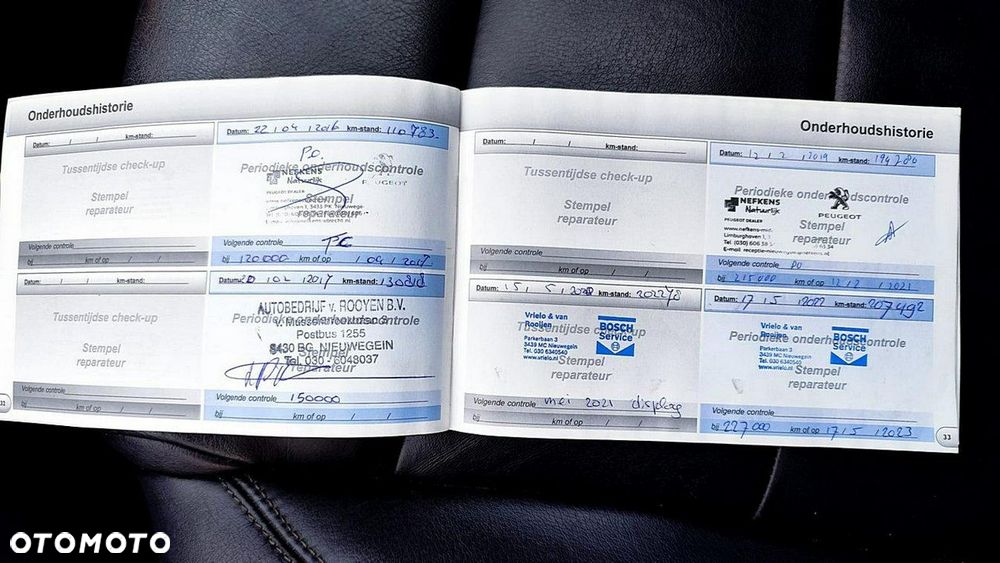 Onderhoudshistorie
Datum: / / km-stand:
Tussentijdse check-up
Stempel
reparateur
Volgende controle
bij km of op / /
Datum: 22 / 04 / 2016 km-stand: 110783
P.O.
Periodieke onderhoudscontrole
NEFKENS
Natuurlijk
PEUGEOT DEALER
PEUGEOT
Stempel
reparateur
Volgende controle
bij 120000 km of op / 04 / 2017
Datum: / / km-stand:
Tussentijdse check-up
Stempel
reparateur
Volgende controle
bij km of op / /
Datum: 20 / 02 / 2017 km-stand: 130818
AUTOBEDRIJF v. ROOYEN B.V.
Periodieke onderhoudscontrole
Postbus 1255
3430 BG NIEUWEGEIN
Stempel
Tel. 030 - 6048037
reparateur
Volgende controle 150000
bij km of op / /
32
Onderhoudshistorie
Datum: / / km-stand:
Tussentijdse check-up
Stempel
reparateur
Volgende controle
bij km of op / /
Datum: 12 / 2 / 2019 km-stand: 194780
Periodieke onderhoudscontrole
NEFKENS
Natuurlijk
PEUGEOT
PEUGEOT DEALER
Stempel
reparateur
Limburghaven 1,
Tel. (030) 606
Volgende controle PO
bij 215000 km of op 12 / 2 / 2021
Datum: 15 / 5 / 2020 km-stand: 202278
Vrielo & van
Rooijen
Tussentijdse check-up
BOSCH
Service
Parkerbaan 3
3439 MC Nieuwegein
Tel. 030 6340540
www.vrielo.nl
Stempel
reparateur
Volgende controle mei 2021 display
bij km of op / /
Datum: 17 / 5 / 2022 km-stand: 207492
Vrielo & van
Rooijen
Periodieke onderhoudscontrole
BOSCH
Service
Parkerbaan 3
3439 MC Nieuwegein
Tel. 030 6340540
www.vrielo.nl
Stempel
reparateur
Volgende controle
bij 227000 km of op 17 / 5 / 2023
33
OTOMOTO